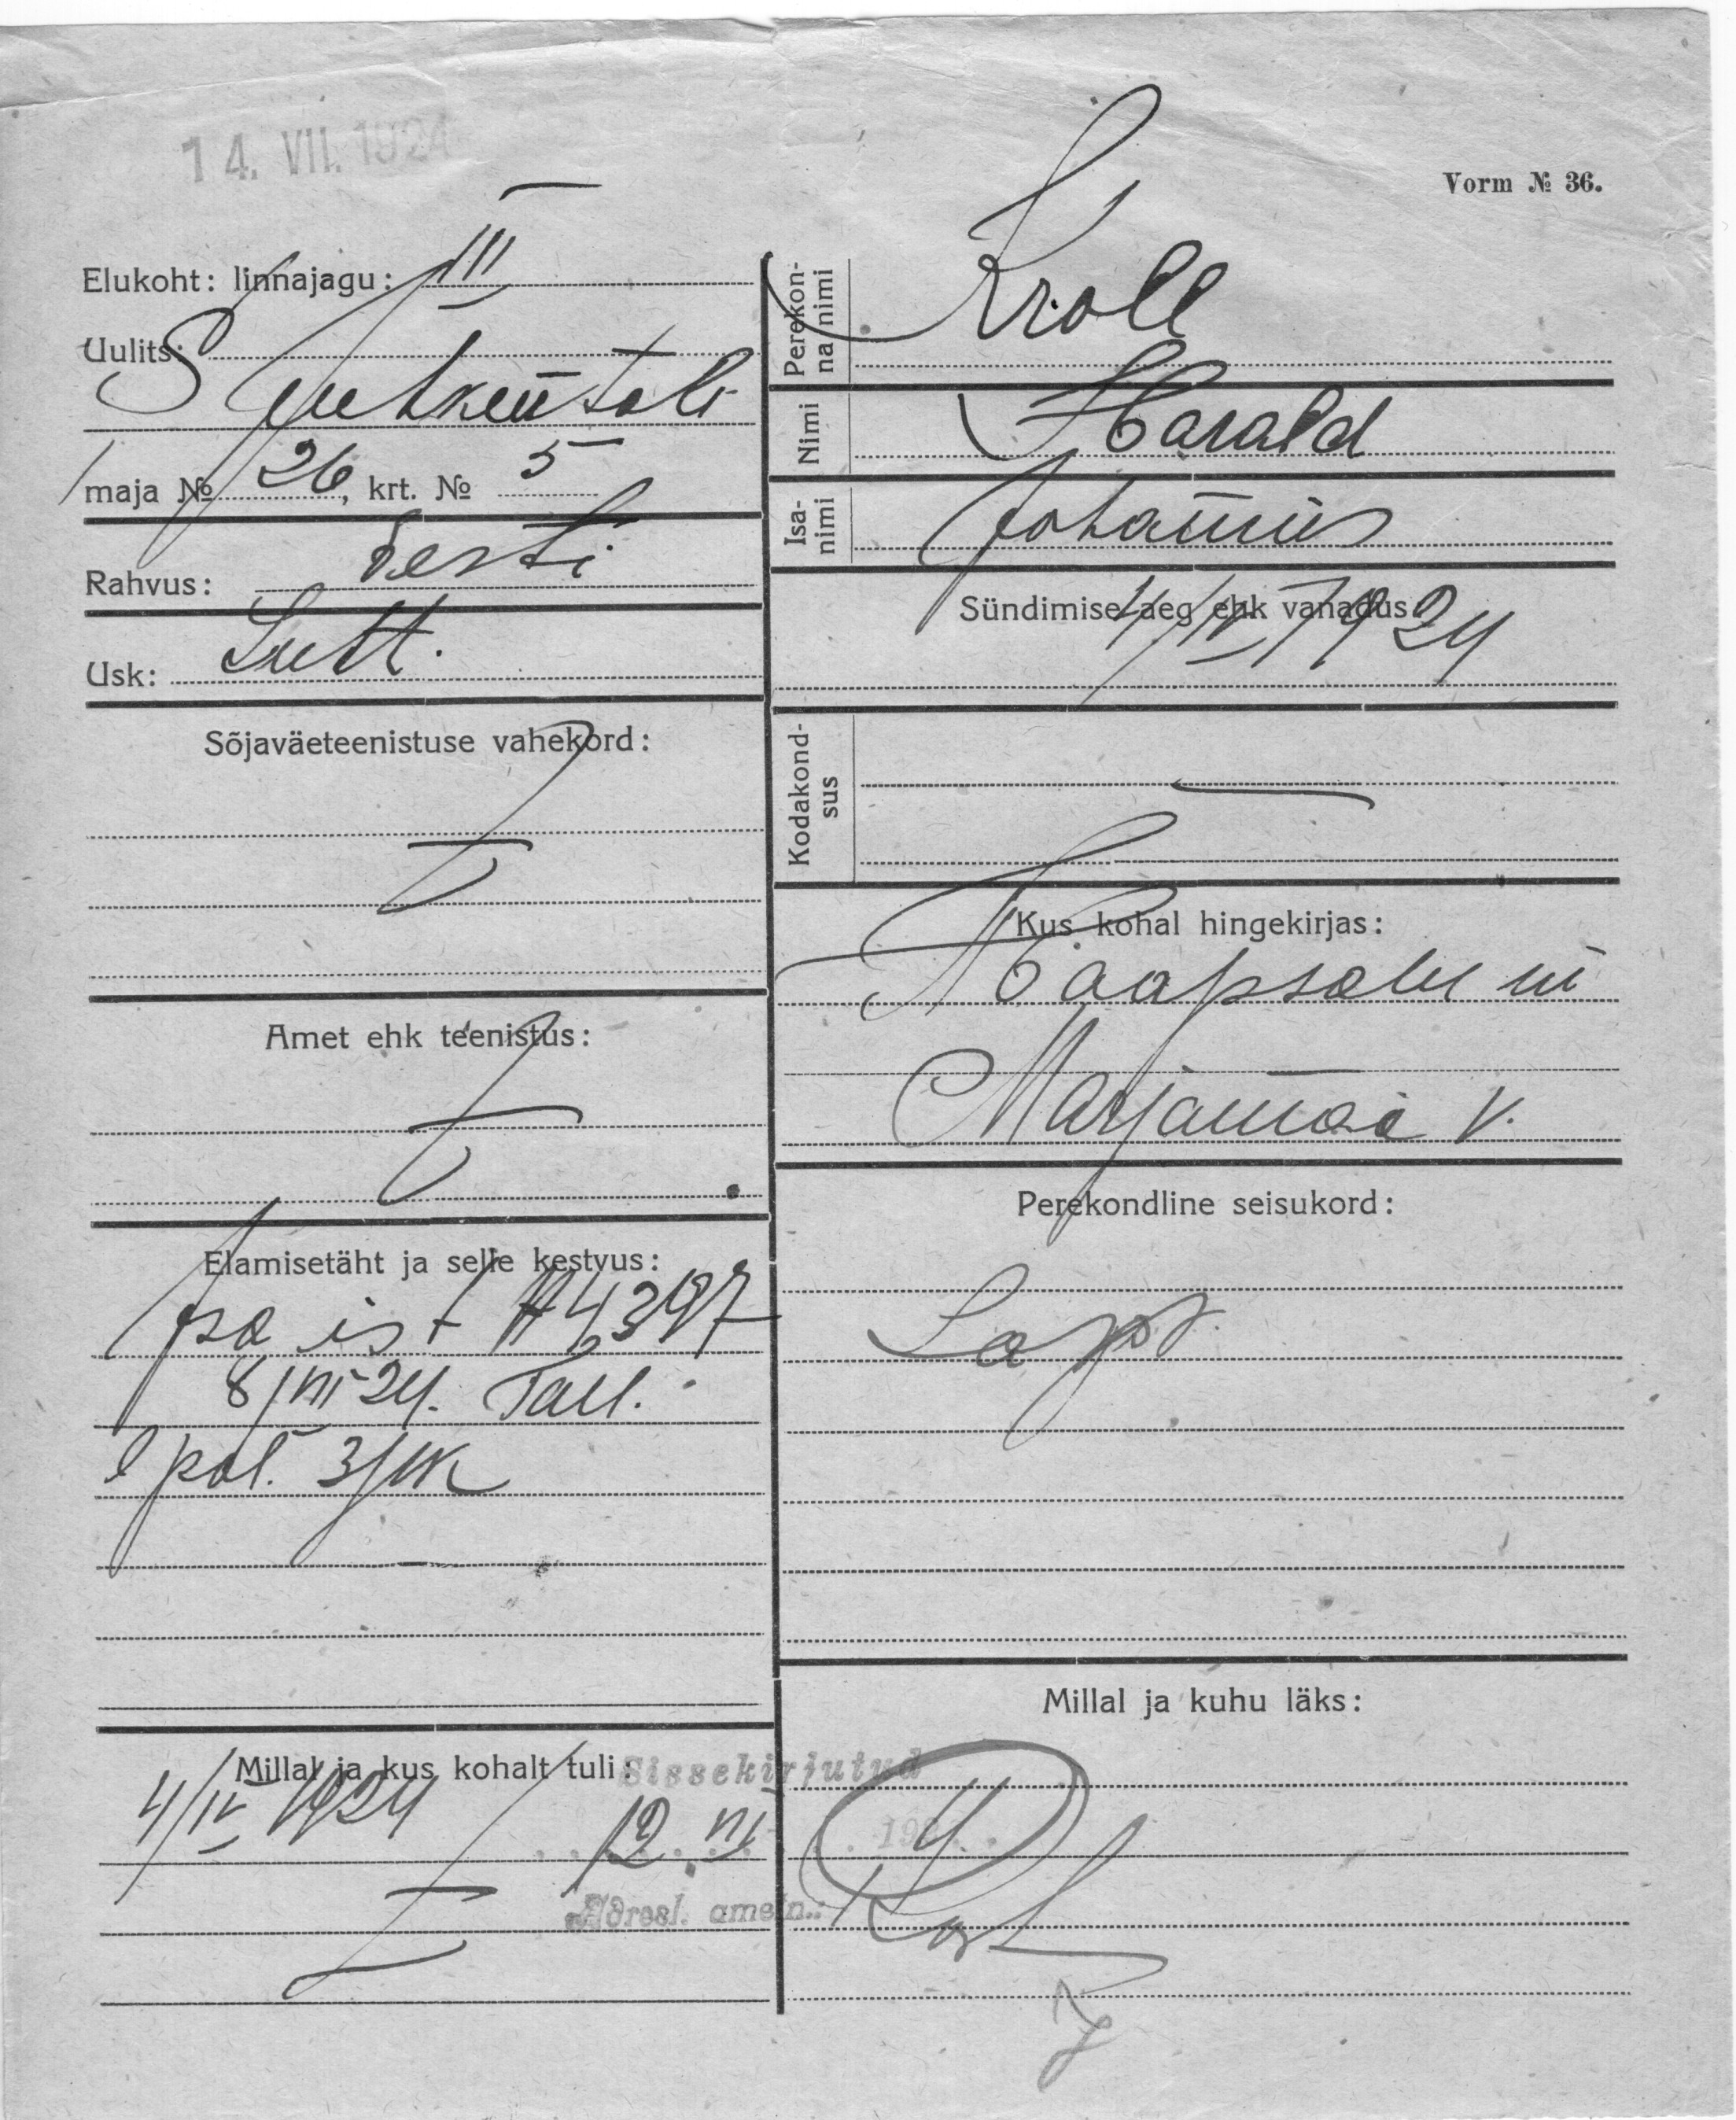 14. VII. 1924
Vorm № 36.
Elukoht: linnajagu: III
Uulits:
S Juhkentali
maja № 26, krt. № 5
Rahvus: Eesti
Usk: Lutt.
Sõjaväeteenistuse vahekord:
Amet ehk teenistus:
Elamisetäht ja selle kestvus:
Isa is. t A 4397
8/VII 24. Tall.
pol. 3 jsk
Millal ja kus kohalt tuli:
4/IV 1924
Perekonna nimi Kroll
Nimi Harald
Isanimi Johannes
Sündimise aeg ehk vanadus:
4/IV 1924
Kodakondsus —
Kus kohal hingekirjas:
Haapsalu m
Marjamaa v.
Perekondline seisukord:
Laps.
Millal ja kuhu läks:
Sissekirjutud
12. VII 192 4
Adresl. ametn.: